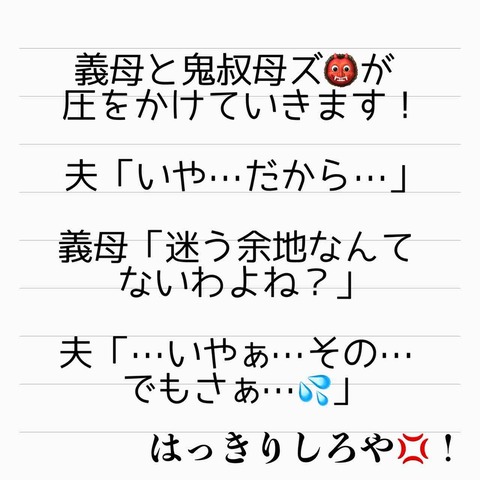 義母と鬼叔母ズ👹が
圧をかけていきます！
夫「いや…だから…」
義母「迷う余地なんて
ないわよね？」
夫「…いやぁ…その…
でもさぁ…💦」
はっきりしろや💢！